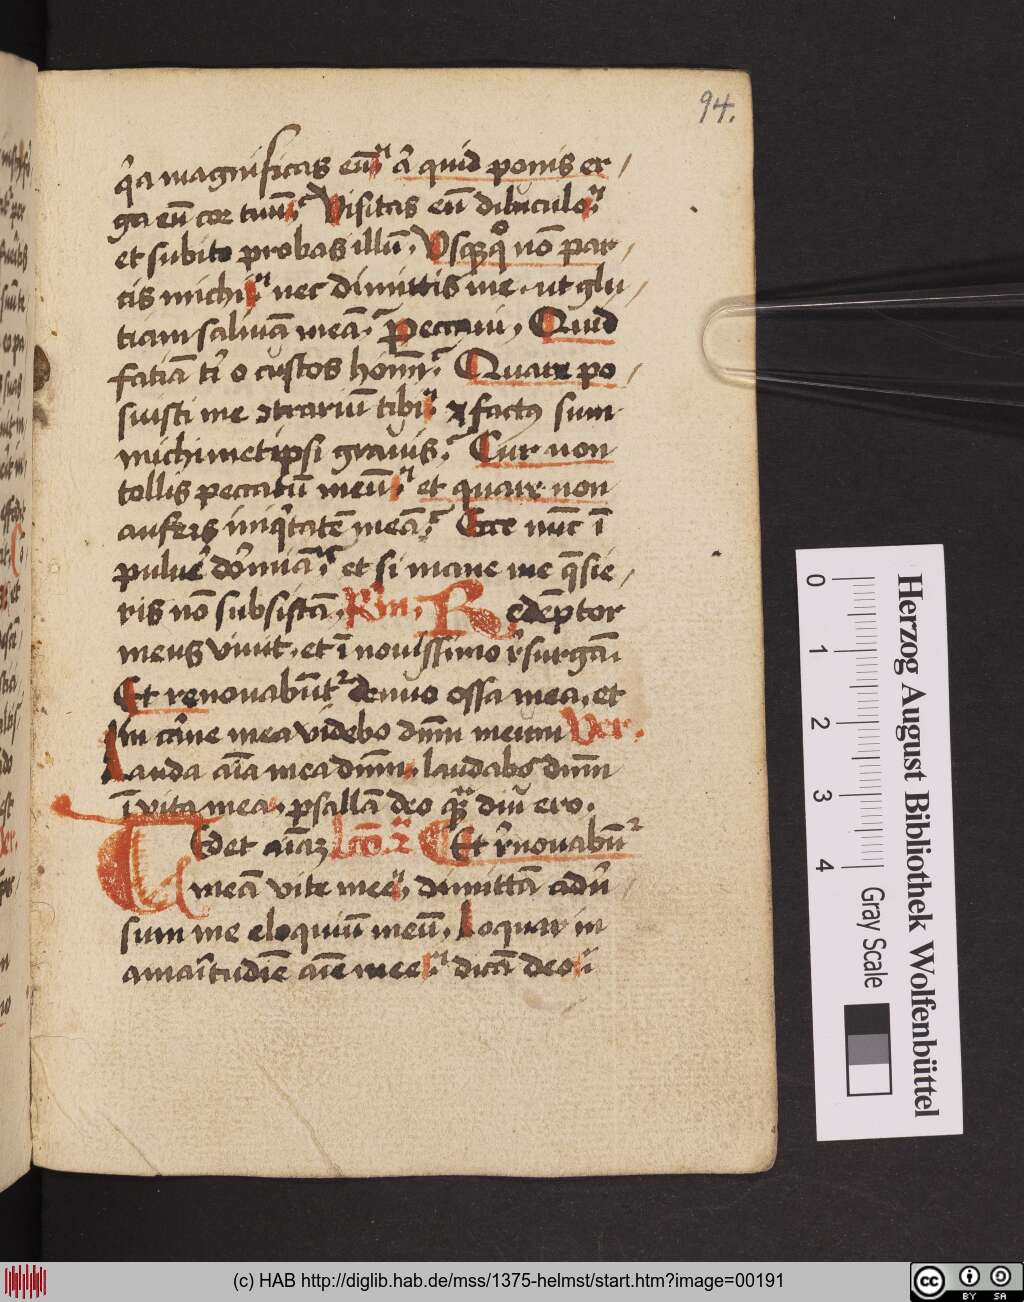 94.
q̉a magnificas eū? a̓ quid ponis er/
ga eū cor tuū? Visitas eū diluculo?
et subito probas illū. Vsq̨q̊ nō par/
cis michi? nec dimittis me. ut glu/
tiam salivam meā? Peccavi, Quid
fatiā ti̓ o custos homī? Quare po/
suisti me ꝯtrariū tibi? ⁊ factꝰ sum
michimetipsi gravis? Cur non
tollis peccatū meū? et quare non
aufers iniq̓tatē meā? Ecce nūc ī
pulue̓ do̓miā? et si mane me q̄sie/
ris nō subsistā. Rm̄. Redēptor
meus vivit. et ī novissimo r̓surgā.
Et renovabūt᷑ denuo ossa mea. et
in ca̓ne mea videbo dn̄m meum Ver.
Lauda aīa mea dn̄m. laudabo dn̄m
ī vita mea. psallā deo q̨ᷓ diū ero.
Tedet aīaʒ Lco̅. 2ᵃ Et r̓novabūt᷑
meā vite mee. dimittā adu̓/
sum me eloquiū meū. Loquar in
amaritudīe aīe mee? dicā deo?
Herzog August Bibliothek Wolfenbüttel
0 1 2 3 4
Gray Scale
(c) HAB http://diglib.hab.de/mss/1375-helmst/start.htm?image=00191
cc BY SA